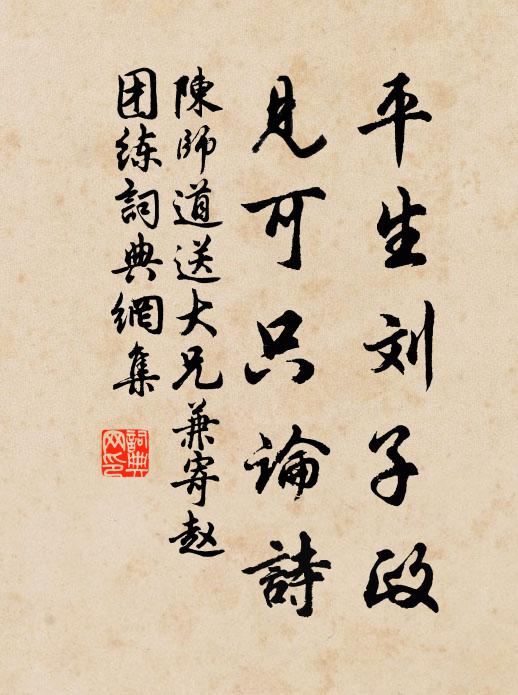 平生刘子政
見可只論詩
陳師道送大兄兼寄赵
团练詞典網集
詞典网印